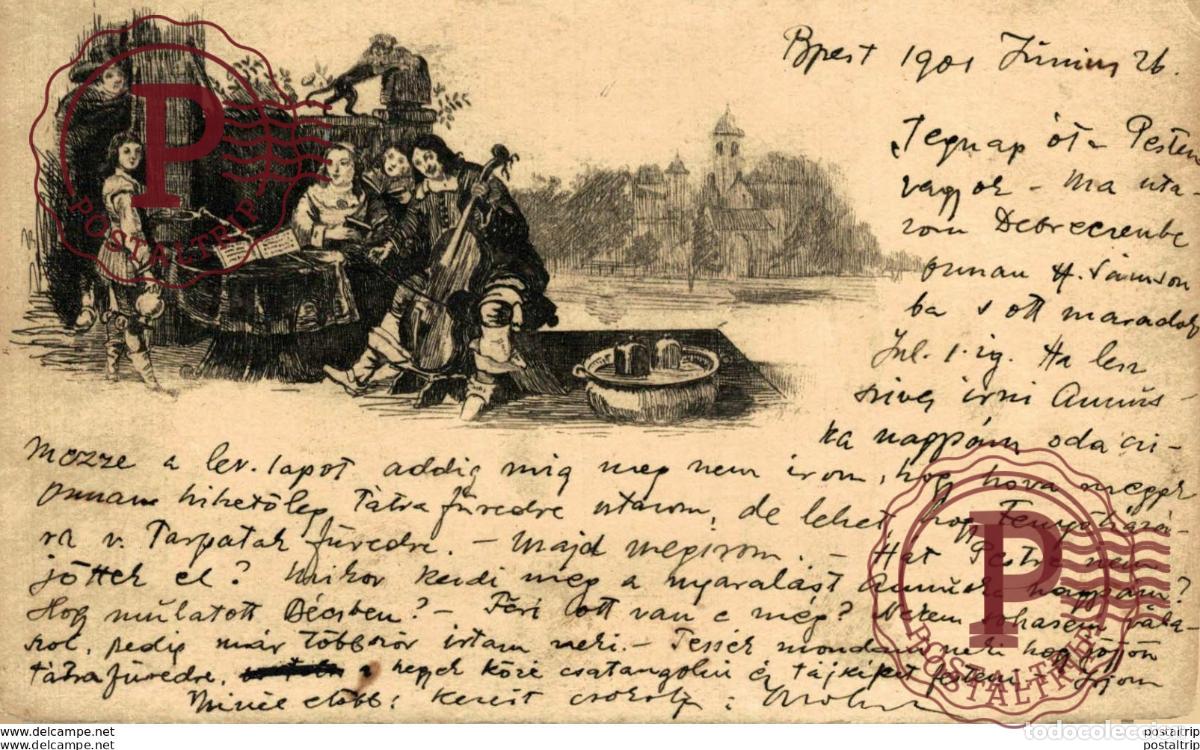 Bpest 1901 Június 26.
Tegnap óta Pesten
vagyok - Ma uta-
zom Debreczenbe
onnan H. Sámson
ba s ott maradok
Jul. 1.-ig. Ha lesz
szives irni Annus-
ka nagysám oda ci-
mezze a lev. lapot addig mig meg nem irom, hogy hova megyek
onnan hihetőleg Tátrafüredre utazom, de lehet hogy
v. Tarpatak füredre. - Majd megirom. - Hát Pestre nem
jöttek el? Mikor kezdi meg a nyaralást Annuska nagysám?
Hogy mulatott Bécsben? - Feri ott van e még? Nekem sohasem vála-
szol, pedig már többször irtam neki. - Tessék mondani neki hogy jöjjön
Tátrafüredre, a hegyek közé csatangolni és tájképet festeni. - Irjon
minél előbb! Kezeit csókolja:
POSTALTRIP
POSTALTRIP
todocoleccion
www.todocoleccion.net
www.todocoleccion.net
postaltrip
postaltrip